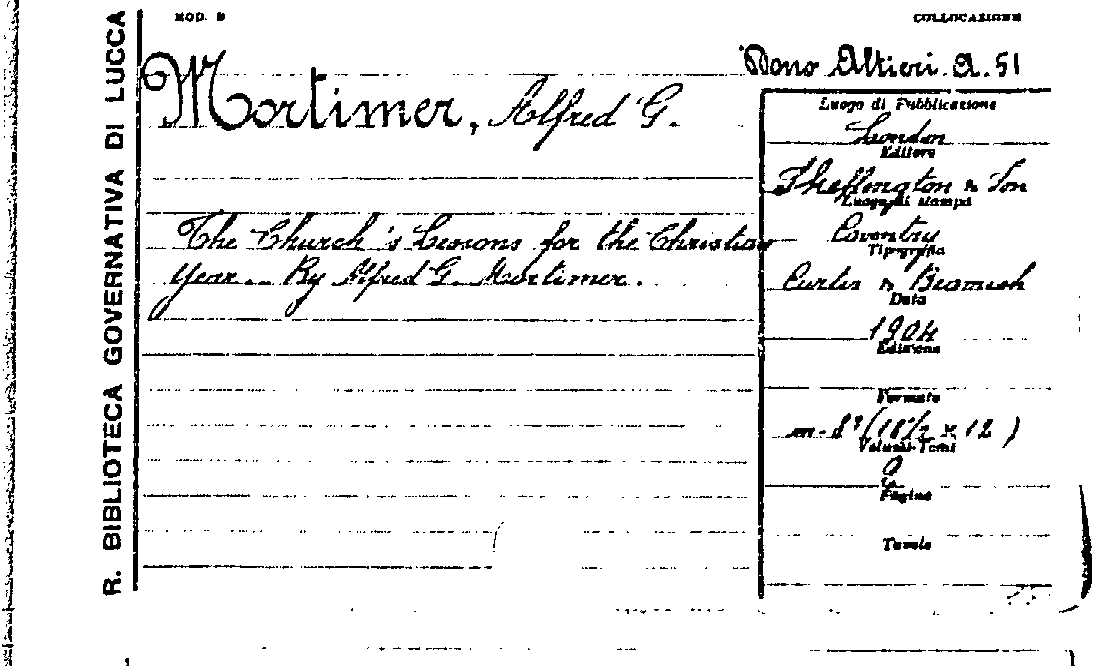 R. BIBLIOTECA GOVERNATIVA DI LUCCA
COLLOCAZIONE
Dono Altieri. A. 51
Mortimer, Alfred G.
The Church's Lessons for the Christian
Year... By Alfred G. Mortimer.
Luogo di Pubblicazione
London
Editore
Skeffington & Son
Luogo di stampa
Coventry
Tipografia
Curtis & Beamish
Data
1904
Edizione
Formato
Volumi-Tomi
2
Pagine
Tavole